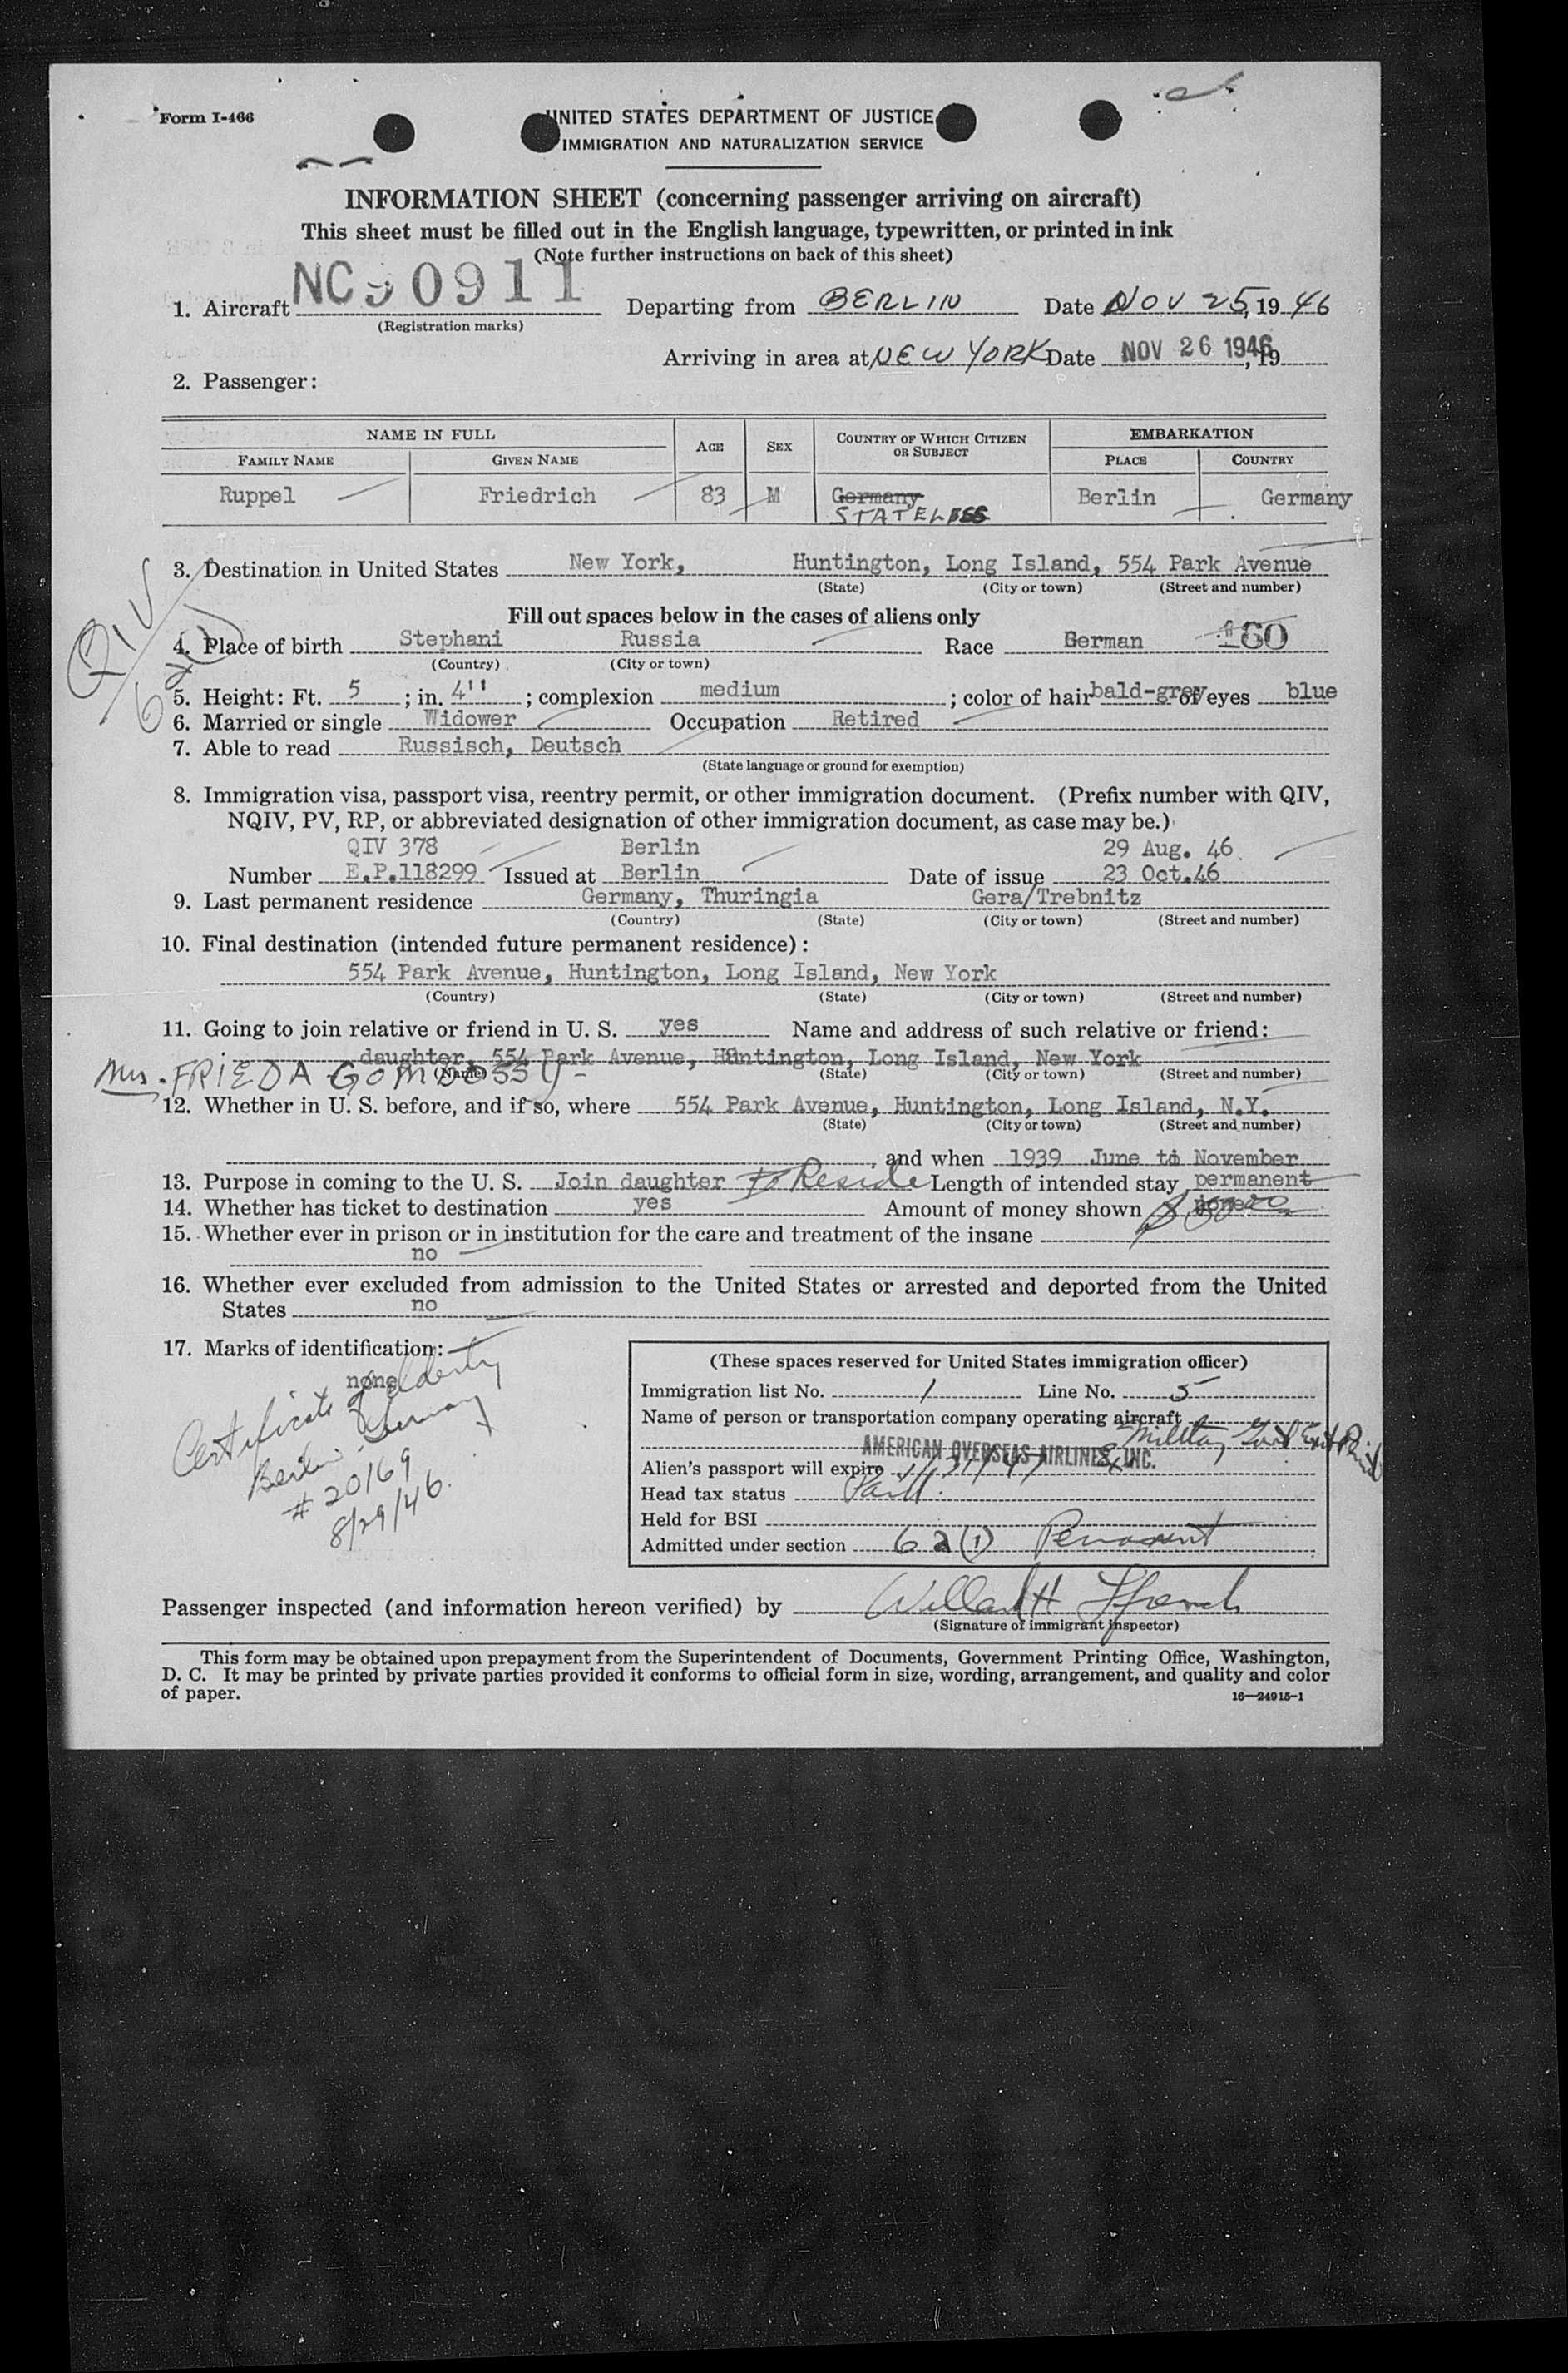 Form I-466
UNITED STATES DEPARTMENT OF JUSTICE
IMMIGRATION AND NATURALIZATION SERVICE
INFORMATION SHEET (concerning passenger arriving on aircraft)
This sheet must be filled out in the English language, typewritten, or printed in ink
(Note further instructions on back of this sheet)
1. Aircraft NC90911 Departing from BERLIN Date NOV 25, 19 46
(Registration marks)
Arriving in area at NEW YORK Date NOV 26 1946, 19
2. Passenger:
NAME IN FULL AGE SEX COUNTRY OF WHICH CITIZEN OR SUBJECT EMBARKATION
FAMILY NAME GIVEN NAME PLACE COUNTRY
Ruppel Friedrich 83 M Germany Berlin Germany
STATELESS
3. Destination in United States New York, Huntington, Long Island, 554 Park Avenue
(State) (City or town) (Street and number)
QIV
6a(1)
Fill out spaces below in the cases of aliens only
4. Place of birth Stephani Russia Race German 160
(Country) (City or town)
5. Height: Ft. 5 ; in. 4" ; complexion medium ; color of hair bald-grey of eyes blue
6. Married or single Widower Occupation Retired
7. Able to read Russisch, Deutsch
(State language or ground for exemption)
8. Immigration visa, passport visa, reentry permit, or other immigration document. (Prefix number with QIV,
NQIV, PV, RP, or abbreviated designation of other immigration document, as case may be.)
QIV 378 Berlin 29 Aug. 46
Number E.P.118299 Issued at Berlin Date of issue 23 Oct.46
9. Last permanent residence Germany, Thuringia Gera/Trebnitz
(Country) (State) (City or town) (Street and number)
10. Final destination (intended future permanent residence):
554 Park Avenue, Huntington, Long Island, New York
(Country) (State) (City or town) (Street and number)
11. Going to join relative or friend in U. S. yes Name and address of such relative or friend:
daughter, 554 Park Avenue, Huntington, Long Island, New York
Mrs. FRIEDA GOMBOSSY
(Name) (State) (City or town) (Street and number)
12. Whether in U. S. before, and if so, where 554 Park Avenue, Huntington, Long Island, N.Y.
(State) (City or town) (Street and number)
, and when 1939 June to November
13. Purpose in coming to the U. S. Join daughter to Reside Length of intended stay permanent
14. Whether has ticket to destination yes Amount of money shown none
15. Whether ever in prison or in institution for the care and treatment of the insane
no
16. Whether ever excluded from admission to the United States or arrested and deported from the United
States no
17. Marks of identification:
none
Certificate of Identity
Berlin Germany
# 20169
8/29/46.
(These spaces reserved for United States immigration officer)
Immigration list No. 1 Line No. 5
Name of person or transportation company operating aircraft
AMERICAN OVERSEAS AIRLINES, INC.
Military Govt Exit Permit
Alien's passport will expire
Head tax status Paid.
Held for BSI
Admitted under section 6a(1) Permanent
Passenger inspected (and information hereon verified) by Willard H
(Signature of immigrant inspector)
This form may be obtained upon prepayment from the Superintendent of Documents, Government Printing Office, Washington,
D. C. It may be printed by private parties provided it conforms to official form in size, wording, arrangement, and quality and color
of paper.
16—24915-1